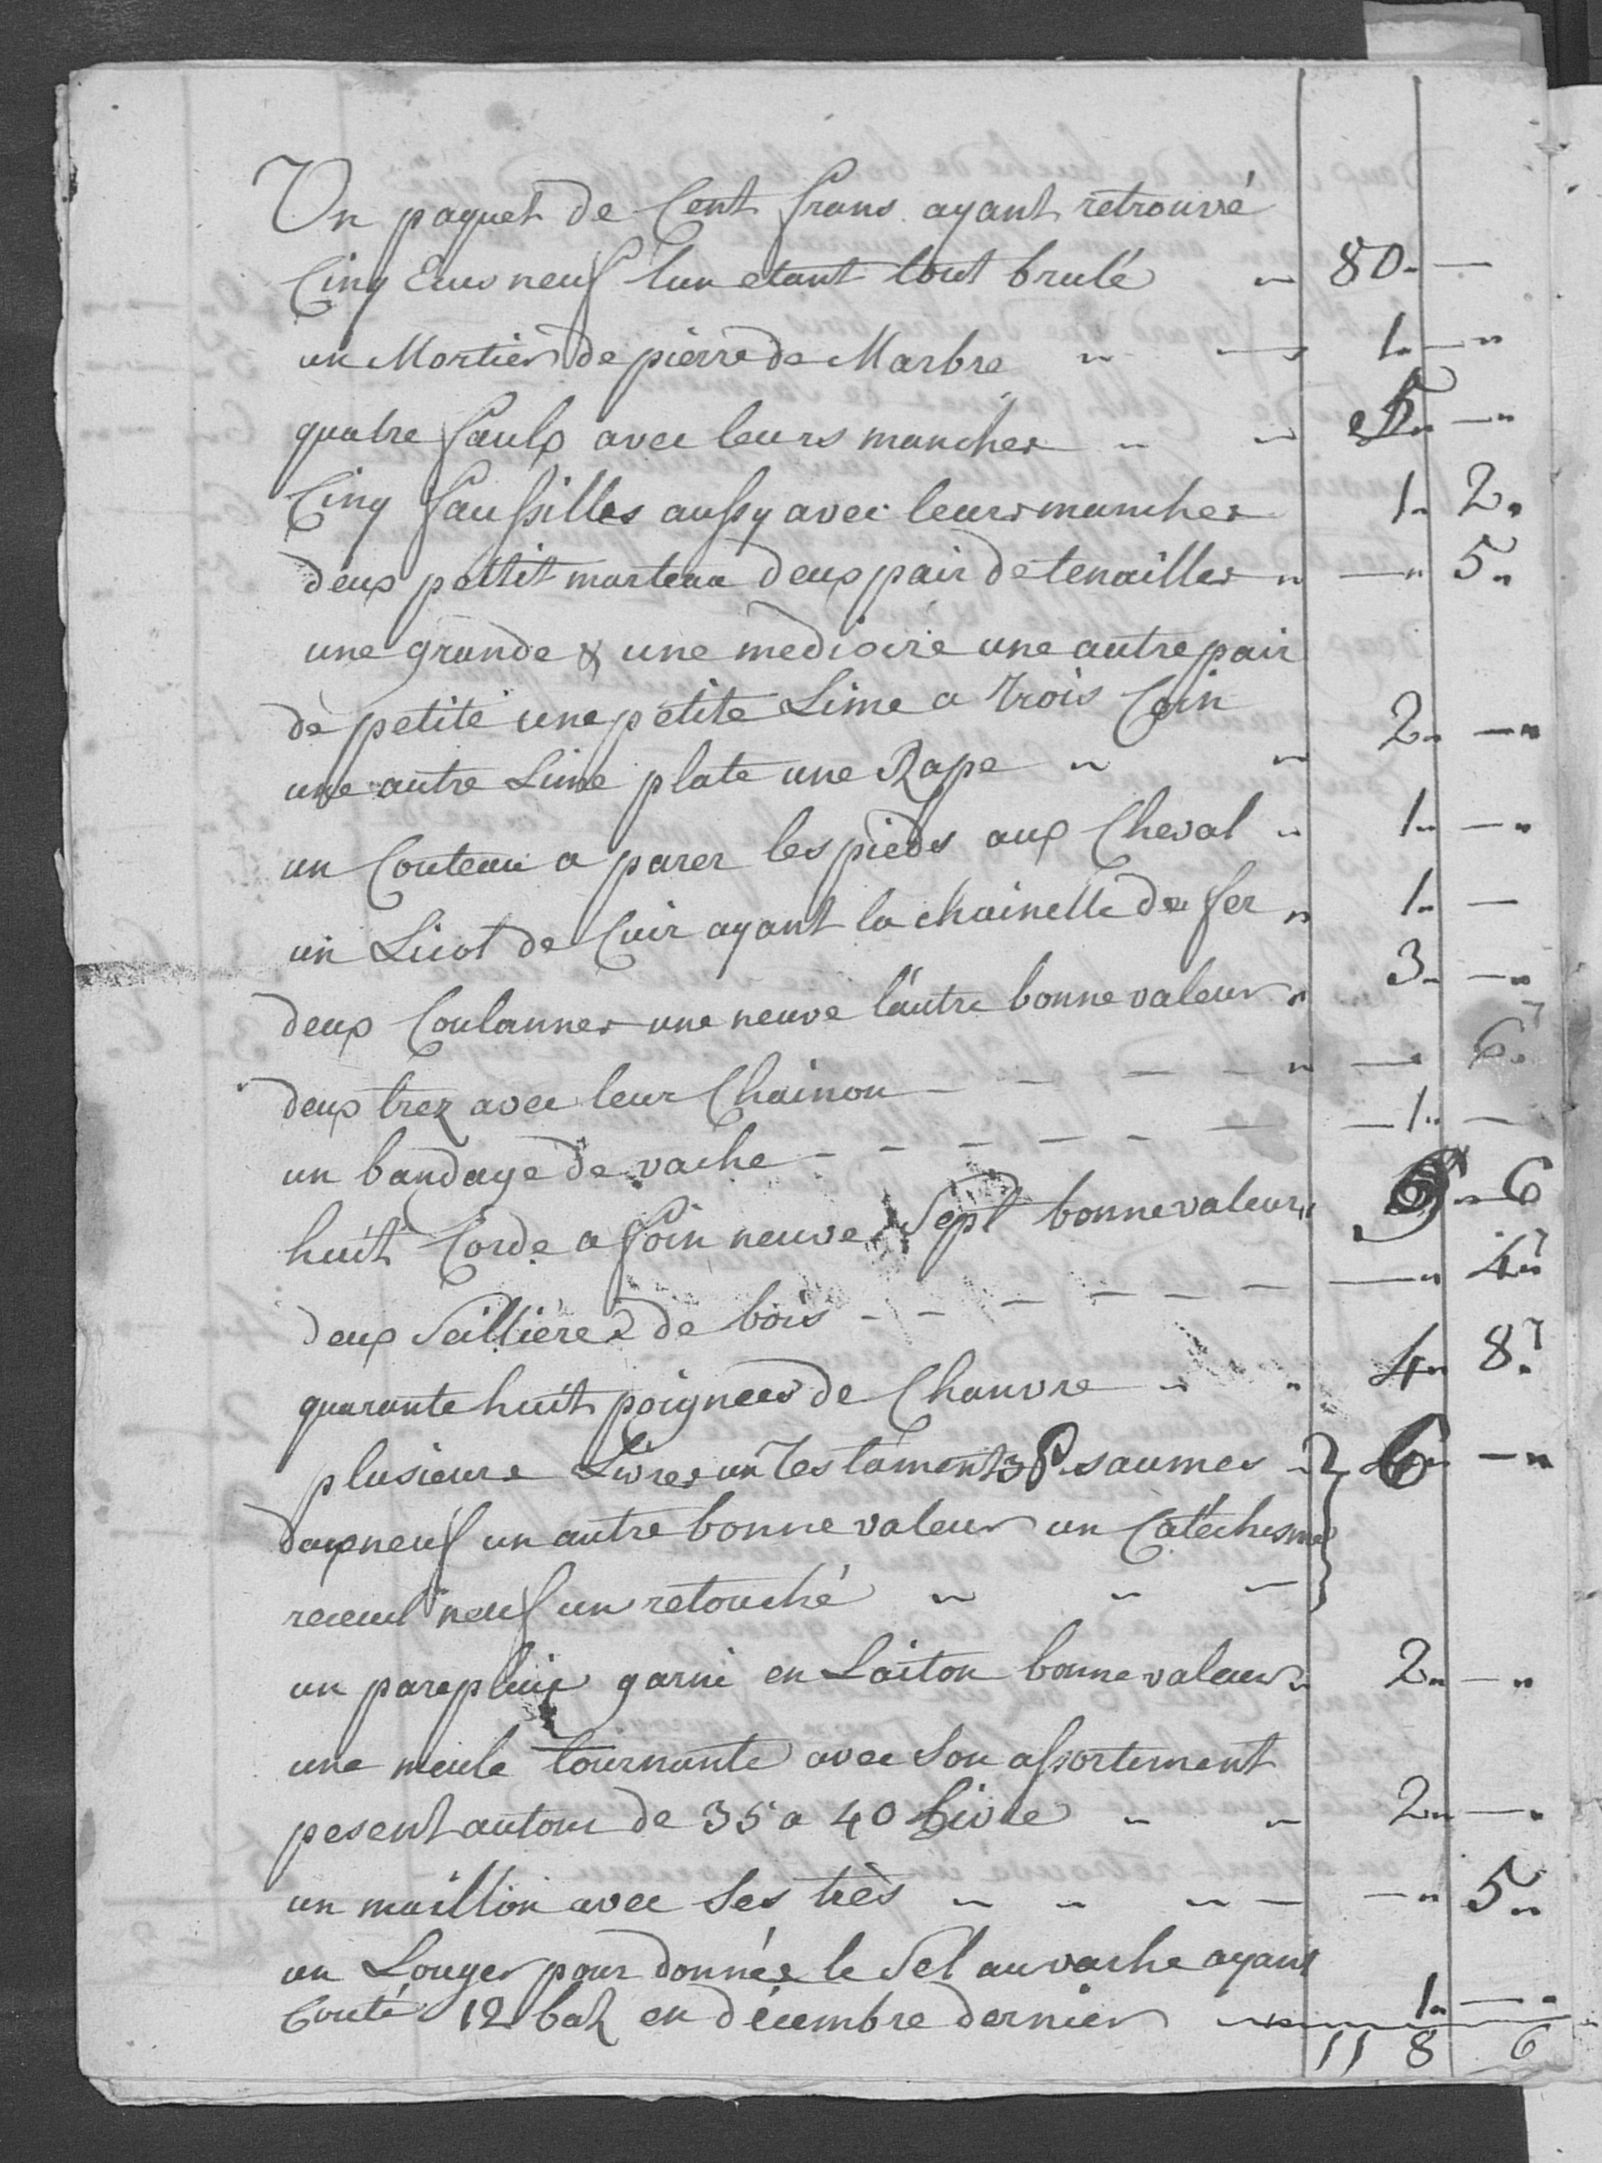 Un paquet de Cent frans ayant retrouvé
Cinq Ecus neuf lun etant tout brulé " 80. —
un Mortier de pierre de Marbre " — 1. — "
quatre faulx avec leurs manches " " 5. — "
Cinq faussilles aussy avec leurs manches 1. 2.
deux pettit marteau deux pair de tenailles " — " 5.
une grande & une mediocre une autre pair
de petite une petite Lime a trois Coin
une autre Lime plate une Rape " " 2. — "
un Couteau a parer les pieds aux Cheval " 1. — "
un Licol de Cuir ayant la chainette de fer " 1. —
deux Coulannes une neuve l'autre bonne valeur " 3. — "
deux trez avec leur Chainon — — — — " — 6.
un bandage de vache — — — — — — 1. —
huit Corde a foin neuve Sept bonne valeur " 6
deux Seillieres de bois — — — — — — " 4.
quarante huit poignees de Chanvre " " 4. 8.
plusieurs Livres un Testament 3 Psaumes " 6 — "
deux neuf un autre bonne valeur un Catechisme
receuil neuf un retouché " " —
un parapluie garni en Laiton bonne valeur " 2. — "
une meule tournante avec Son assortement
pesent autour de 35 a 40 Livre " " 2. — .
un maillon avec Ses très " " " — — " 5.
un Louger pour donnée le Sel au vache ayant
Couté 12 batz en décembre dernier " 1. — .
118 6